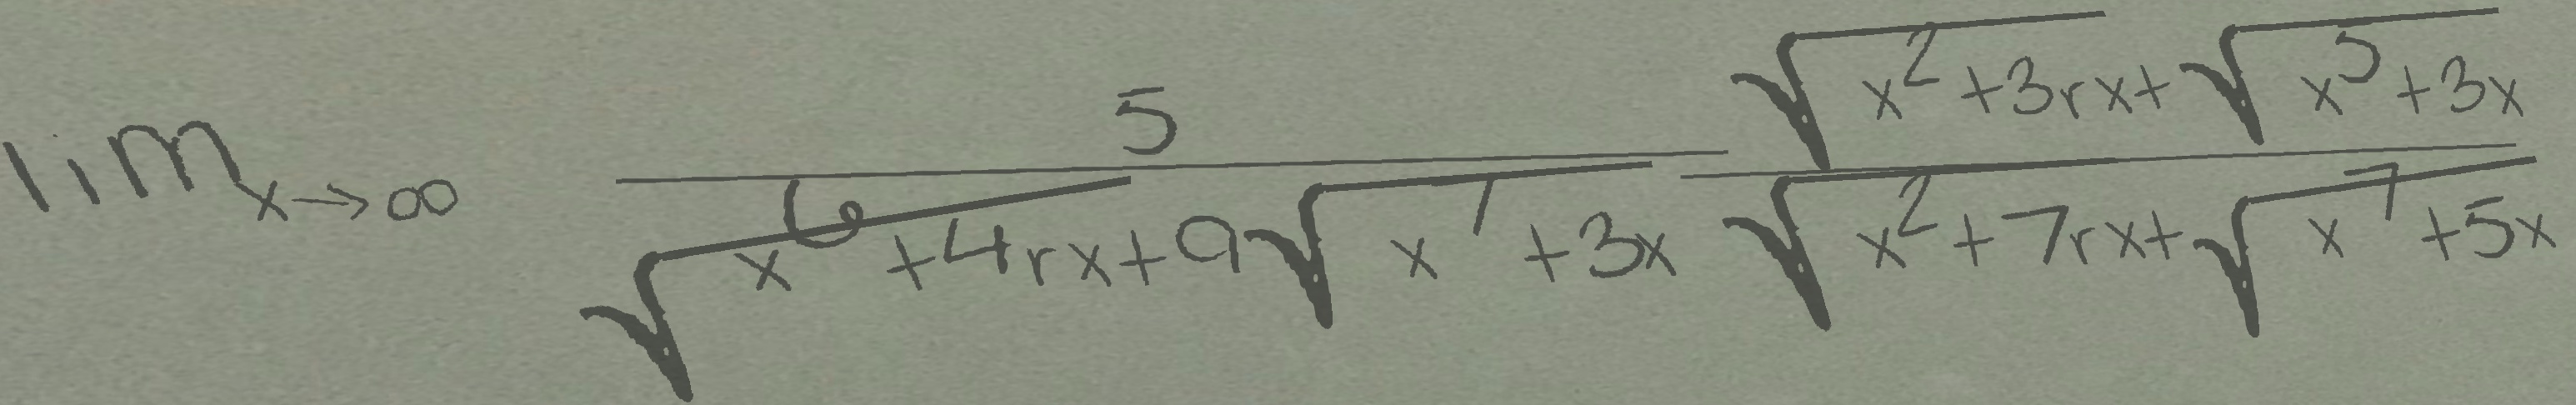 \lim_{x \to \infty} \frac{5}{\sqrt{x^6+4rx}+9\sqrt{x^1+3x}} \frac{\sqrt{x^2+3rx}+\sqrt{x^5+3x}}{\sqrt{x^2+7rx}+\sqrt{x^7+5x}}